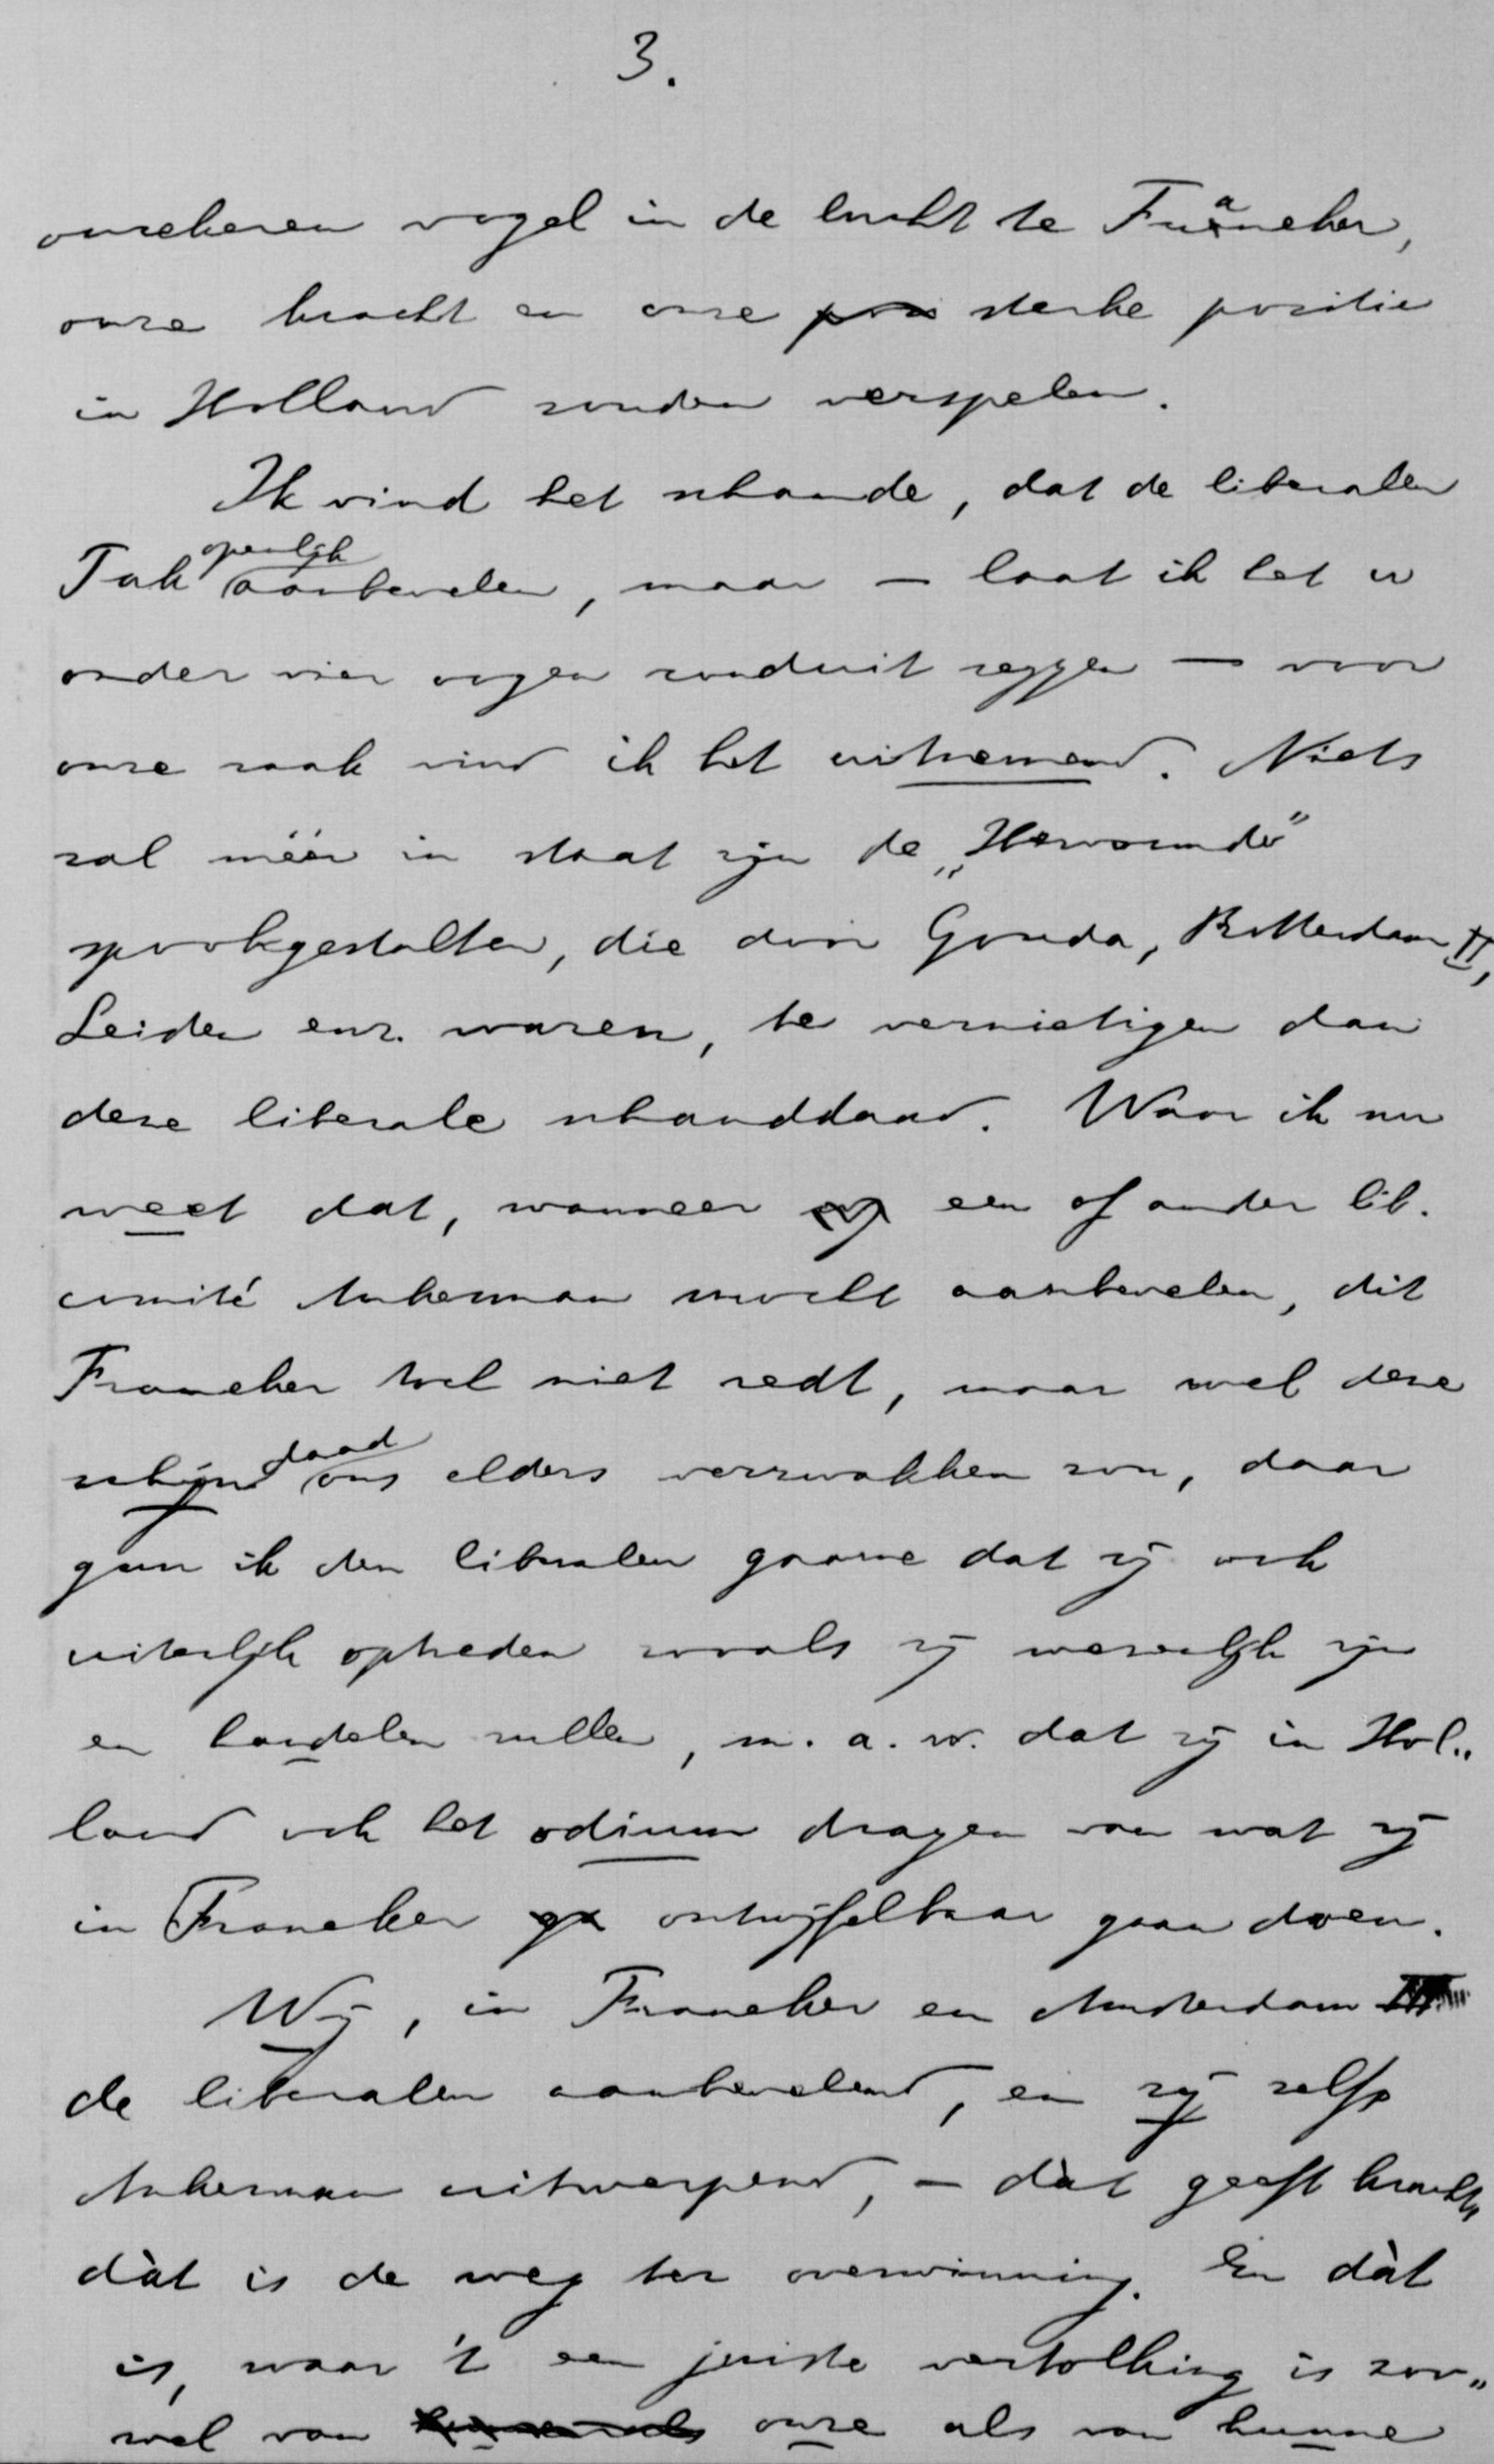 3.
onzekeren vogel in de lucht te Franeker,
onze kracht en onze pos sterke positie
in Holland zouden verspelen.
Ik vind het schande, dat de liberalen
Tak openlijk aanbevelen, maar — laat ik het u
onder vier oogen ronduit zeggen — voor
onze zaak vind ik het uitnemend. Niets
zal méér in staat zijn de „Hervormde"
spookgestalten, die door Gouda, Rotterdam II,
Leiden enz. waren, te vernietigen dan
deze liberale schanddaad. Waar ik nu
weet dat, wanneer een of ander lib.
comité Ankerman mocht aanbevelen, dit
Franeker tóch niet redt, maar wel deze
schijndaad ons elders verzwakken zou, daar
gun ik den liberalen gaarne dat zij ook
uiterlijk optreden zooals zij wezenlijk zijn
en handelen zullen, m. a. w. dat zij in Hol„
land ook het odium dragen van wat zij
in Franeker ga ontwijfelbaar gaan doen.
Wij, in Franeker en Amsterdam
de liberalen aanbevelend, en zij zelfs
Ankerman uitwerpend, — dàt geeft kracht,
dàt is de weg ter overwinning. En dàt
is, waar 't een juiste vertolking is zoo„
wel van onze als van hunne